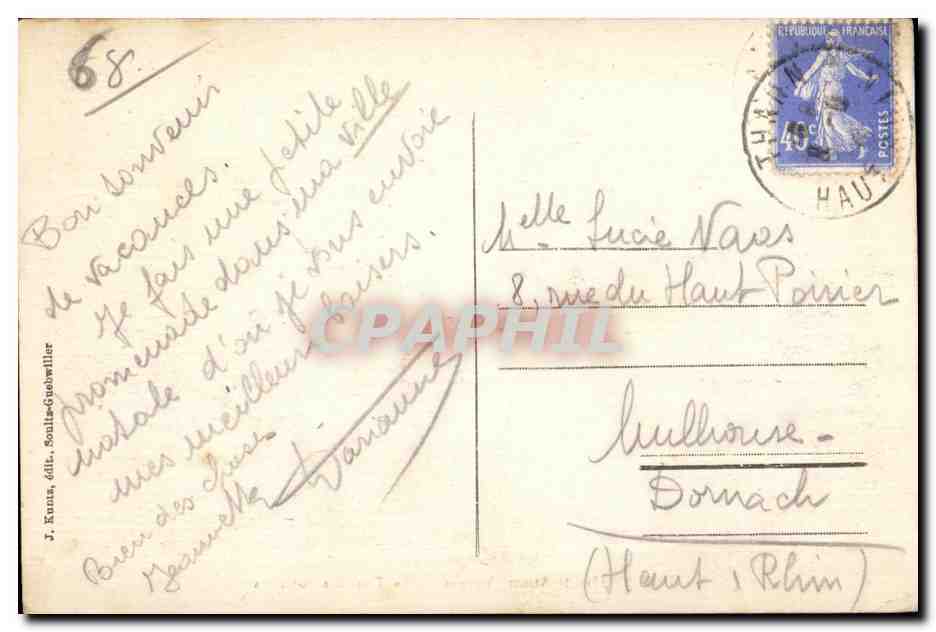 68.
Bon souvenir
de vacances.
Je fais une petite
promenade dans ma ville
natale d'où je vous envoie
mes meilleurs baisers.
Marianne
Bien des choses
Jeannette
J. Kuntz, édit., Soultz-Guebwiller
CPAPHIL
RÉPUBLIQUE FRANÇAISE
40c
POSTES
THANN
HAUT
Melle Lucie Vaas
8, rue du Haut Poirier
Mulhouse-
Dornach
(Haut, Rhin)